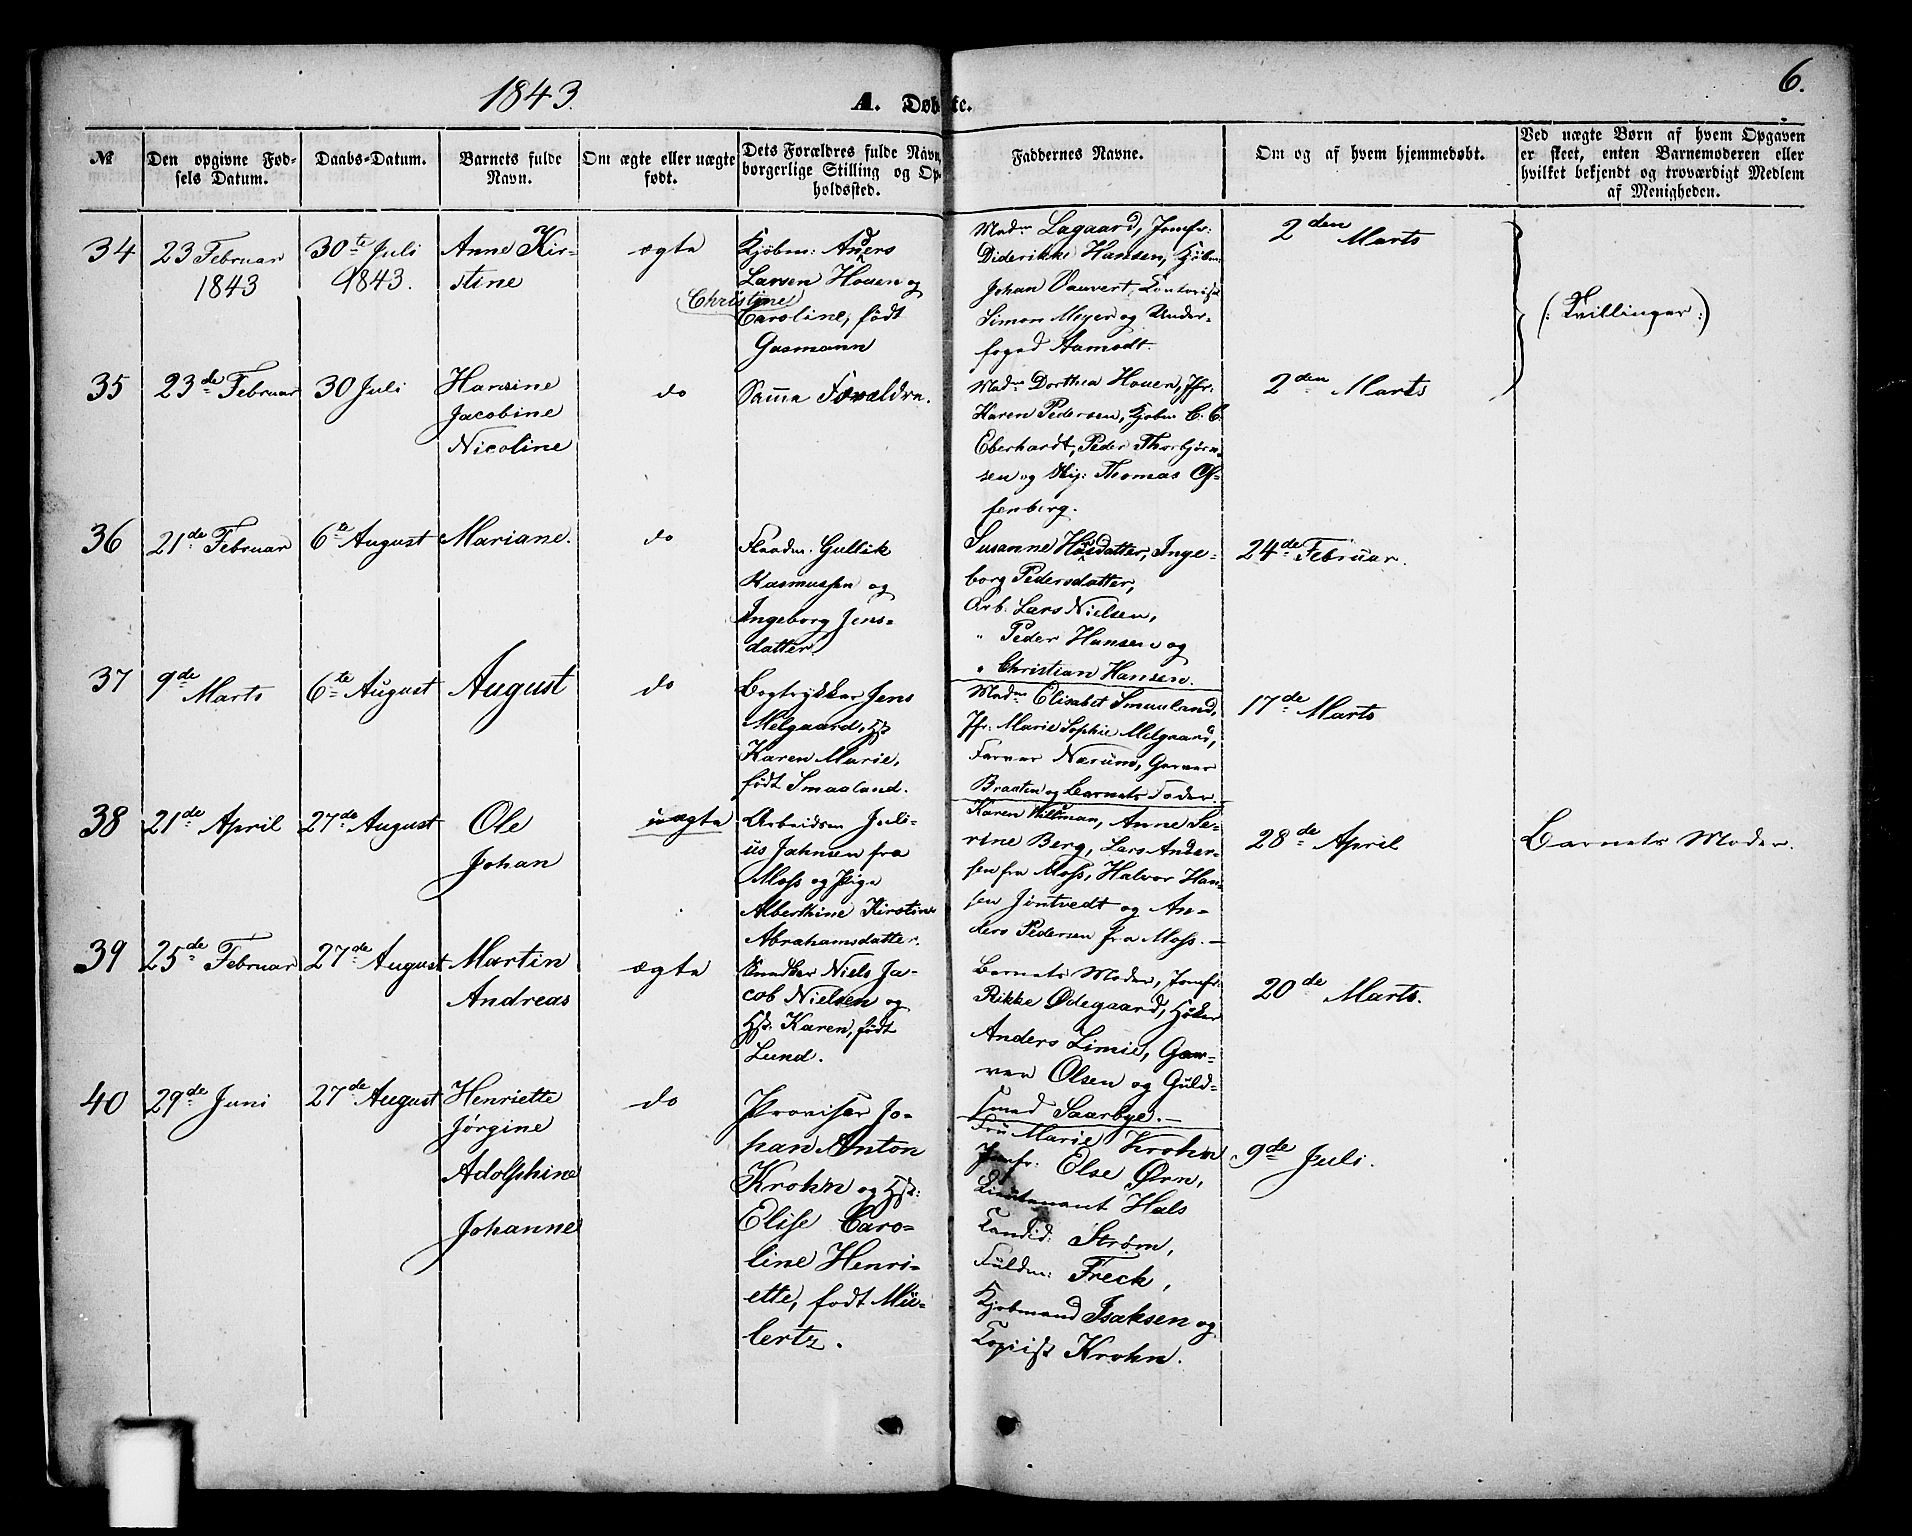 1843.
A. Døbte.
6.
№
Den opgivne Fød-
sels Datum.
Daabs-Datum.
Barnets fulde
Navn.
Om ægte eller uægte
født.
Dets Forældres fulde Navn,
borgerlige Stilling og Op-
holdssted.
Faddernes Navne.
Om og af hvem hjemmedøbt.
Ved uægte Børn af hvem Opgaven
er skeet, enten Barnemoderen eller
hvilket bekjendt og troværdigt Medlem
af Menigheden.
34
23 Februar
1843
30te Juli
1843.
Anne Kir-
stine
ægte
Kjøbm: Anders
Larsen Houen og
Christine
Caroline, født
Gasmann
Madm Lagaard, Jomfr:
Diderikke Hansen, Kjøbm:
Johan Vauvert, Contorist
Simon Meyer og Under-
foged Aamodt.
2den Marts
(: Tvillinger :)
35
23de Februar
30 Juli
Hansine
Jacobine
Nicoline
do
Samme Forældre.
Madm Dorthea Houen, Jfr:
Karen Pedersen, Kjøbm C. C.
Eberhardt, Peder Thorbjørn-
sen og Thomas Of-
fenberg.
2den Marts
36
21de Februar
6te August
Mariane.
do
Gullik
Rasmussen og
Ingeborg Jens-
datter.
Susanne Hansdatter, Inge-
borg Pedersdatter,
Arb. Lars Nielsen,
" Peder Hansen og
" Christian Hansen.
24de Februar.
37
9de
Marts
6te August
August
do
Bogtrykker Jens
Melgaard, Hst
Karen Marie,
født Smaaland.
Madm Elisabet Smaaland,
Jfr: Marie Sophie Melgaard,
Farver Nærum, Garver
Braaten og Barnets Fader.
17de Marts
38
21de April
27de August
Ole
Johan
uægte
Arbeidsm Juli-
us Jahnsen fra
Moss og Pige
Alberthine Kirstine
Abrahamsdatter.
Karen Willman, Anne Se-
rine Berg, Lars Ander-
sen fra Moss, Halvor Han-
sen Jøntvedt og An-
ders Pedersen fra Moss.
28de April
Barnets Moder.
39
25de Februar
27de August
Martin
Andreas
ægte
Snedker Niels Ja-
cob Nielsen og
Hst: Karen, født
Lund.
Barnets Moder, Jomfr:
Rikke Ødegaard, Høker
Anders Limie, Gar-
ver Olsen og Guld-
smed Saarbye.
20de Marts.
40
29de Juni
27de August
Henriette
Jørgine
Adolphine
Johanne
do
Provisor Jo-
han Anton
Krohn og Hst:
Elise Caro-
line Henri-
ette, født Mü-
lertz.
Fru Marie Krohn
Jomfr: Else Ørn,
Lieutenant Hals
Candid: Strøm,
Fuldm: Freck,
Kjøbmand Isaksen og
Copist Krohn.
9de Juli.